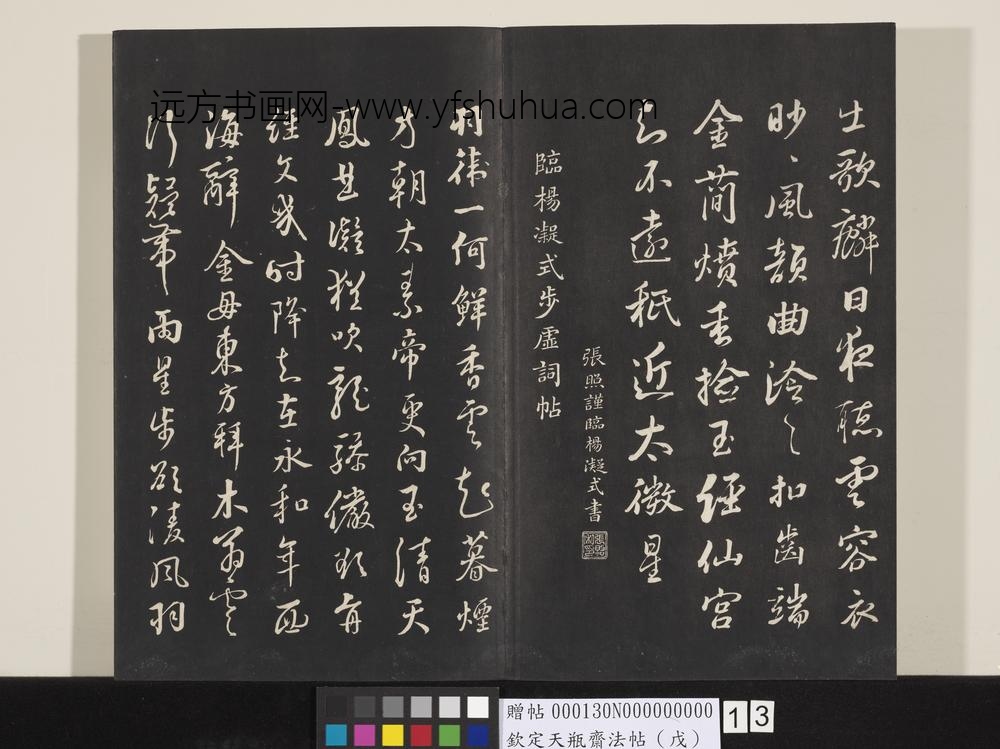 士歌麟日夜聽雲容衣
眇眇風韻曲泠泠扣齒端
金蕳燌香撿玉經仙宮
知不遠秖近太微星
張照謹臨楊凝式書
臨楊凝式步虛詞帖
羽衛一何鮮香雲起暮煙
方朝太素帝更向玉清天
鳳曲凝猶吹龍驂儼欲前
誰文幾時降知在永和年西
海辭金母東方拜木公雲
行疑帶雨星步欲凌風羽
远方书画网-www.yfshuhua.com
贈帖 000130N000000000
欽定天瓶齋法帖（戊）
13